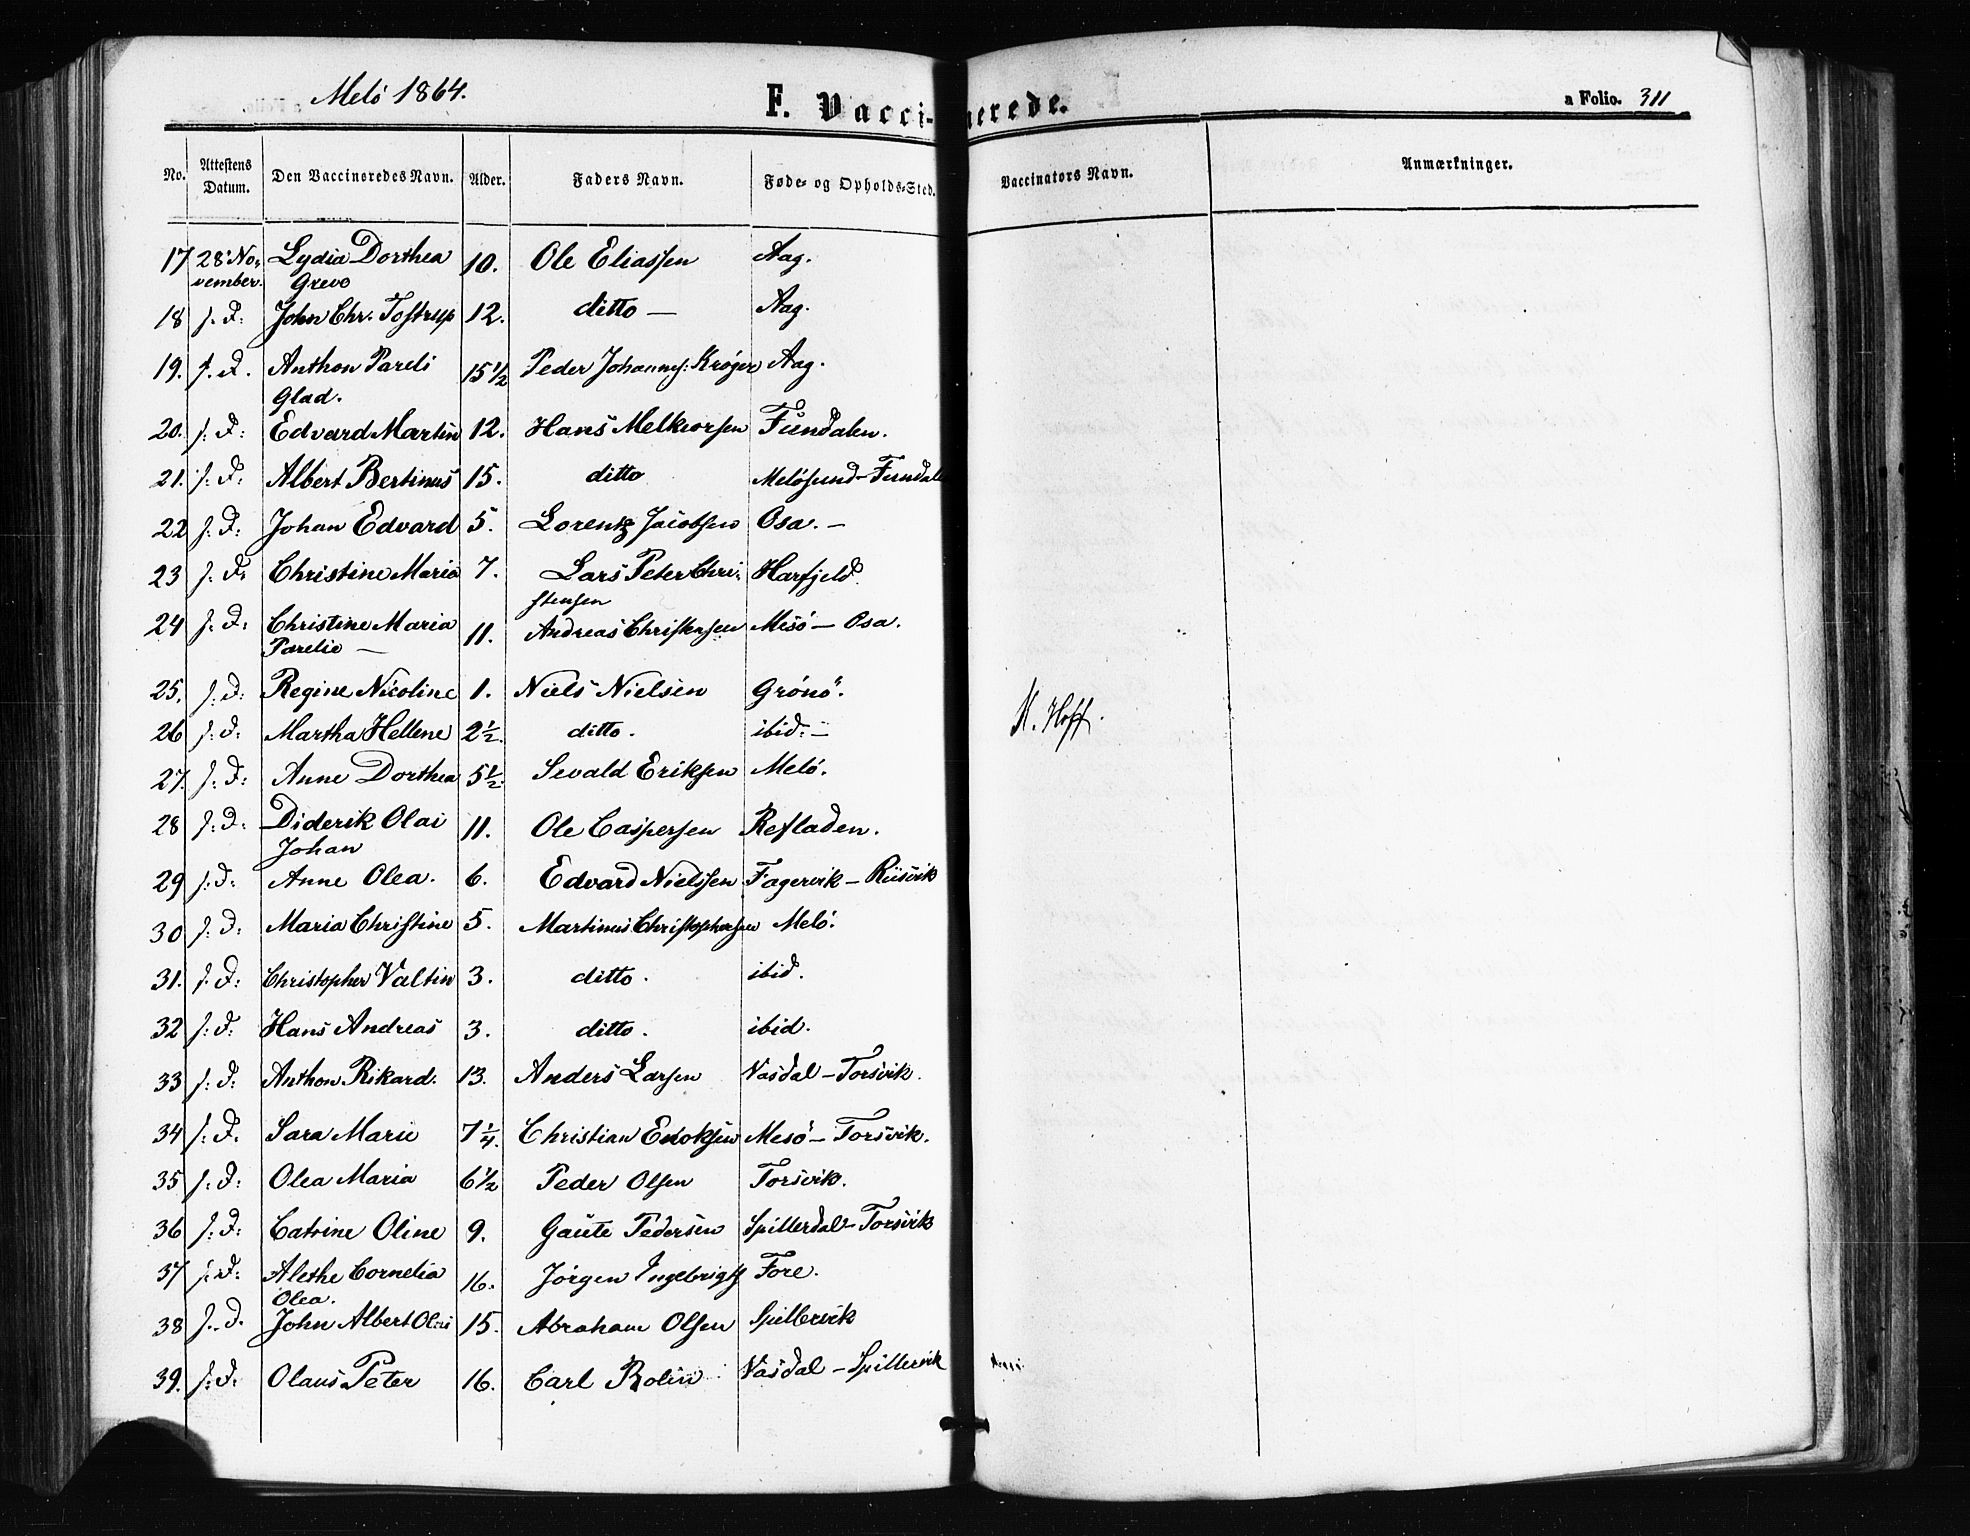 Melö 1864.
F. Vaccinerede.
a Folio. 311
No. Attestens Datum. Den Vaccineredes Navn. Alder. Faders Navn. Føde- og Opholds-Sted. Vaccinators Navn. Anmærkninger.
17 28' No- Lydia Dorthea 10. Ole Eliassen Aag.
vember. Greve
18 s. D: John Chr. Tostrup 12. ditto — Aag.
19. s. D. Anthon Pareli 15 1/2 Peder Johannes: Krøger Aag.
Glad.
20. s: D: Edvard Martin 12. Hans Melkiorsen Fundalen.
21. s: D: Albert Bertinus 15. ditto Melösund - Fundale
22 s: D: Johan Edvard 5. Lorentz Jacobsen Osa. —
23 s: D: Christine Maria 7. Lars Peter Chri- Harfjeld.
stensen
24 s: D: Christine Maria 11. Andreas Christensen Mesö — Osa.
Parelie —
25. s: D: Regine Nicoline 1. Niels Nielsen Grönö.
26 s: D: Martha Hellene 2 1/2. ditto. ibid: — N. Hoff.
27. s: D: Anne Dorthea 5 1/2. Sevald Eriksen Melö.
28 s: D: Diderik Olai 11. Ole Caspersen Refladen.
Johan
29 s: D: Anne Olea. 6. Edvard Nielssen Fagervik — Riisvik
30 s: D: Maria Christine 5. Martinus Christophersen Melö.
31. s. D: Christopher Valtin 3. ditto. ibid.
32 s: D: Hans Andreas 3. ditto. ibid.
33 s: D: Anthon Rikard. 13. Anders Larsen Vasdal — Torsvik.
34 s: D. Sara Marie 7 1/4. Christian Enoksen Mesö — Torsvik.
35 s: D: Olea Maria 6 1/2 Peder Olsen Torsvik.
36 s: D: Catrine Oline 9. Gaute Pedersen Spillerdal — Torsvik
37 s: D: Alethe Cornelia 16. Jörgen Ingebrigts Fore.
Olea.
38 s.. D. John Albert Olai 15. Abraham Olsen Spillervik
39. s: D: Olaus Peter 16. Carl Rolin Vasdal — Spillervik